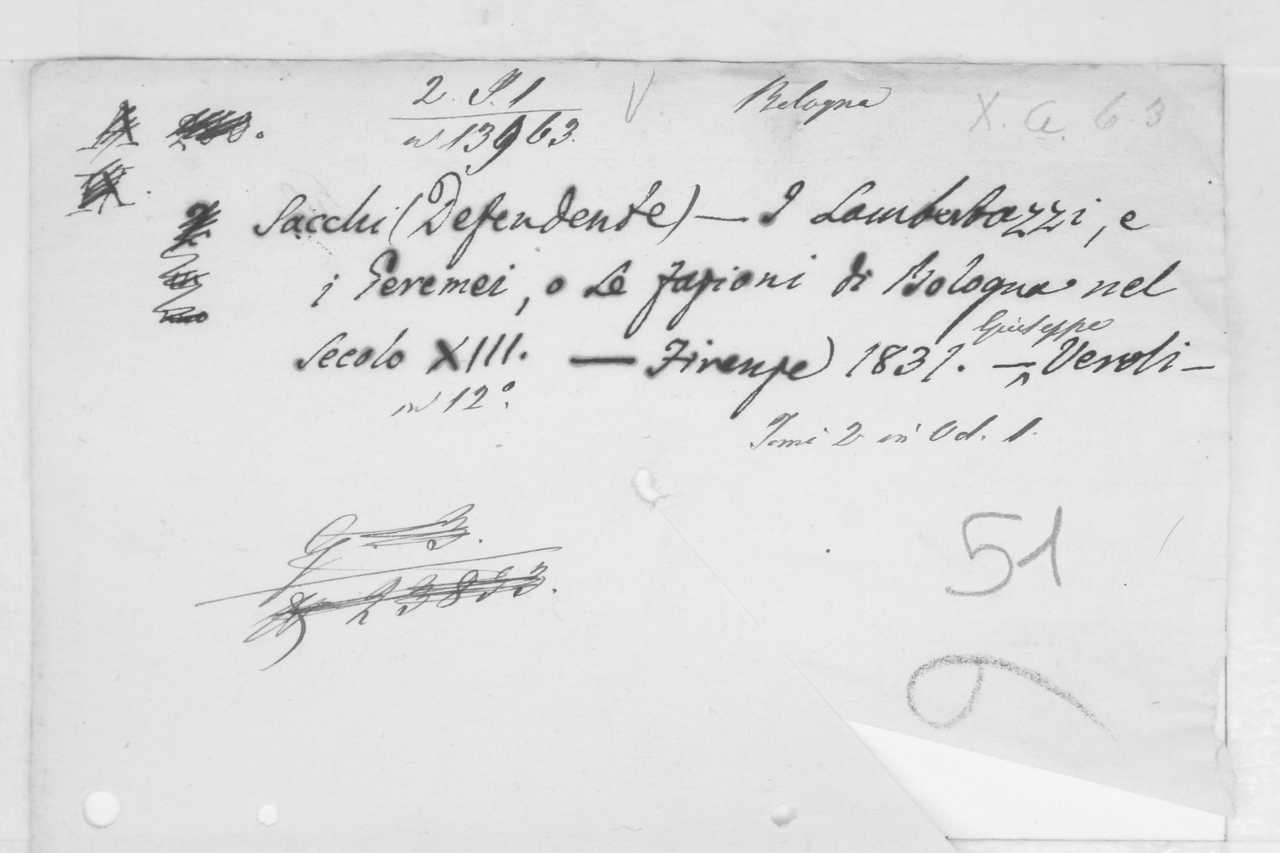 2. S. 1 V Bologna X. a. 6 3
n 13963.
Sacchi (Defendente) — I Lambertazzi, e
i Geremei, o Le fazioni di Bologna nel
Secolo XIII. — Firenze) 1831. — Giuseppe Veroli —
in 12°.
Tomi 2 in Vol. 1.
51